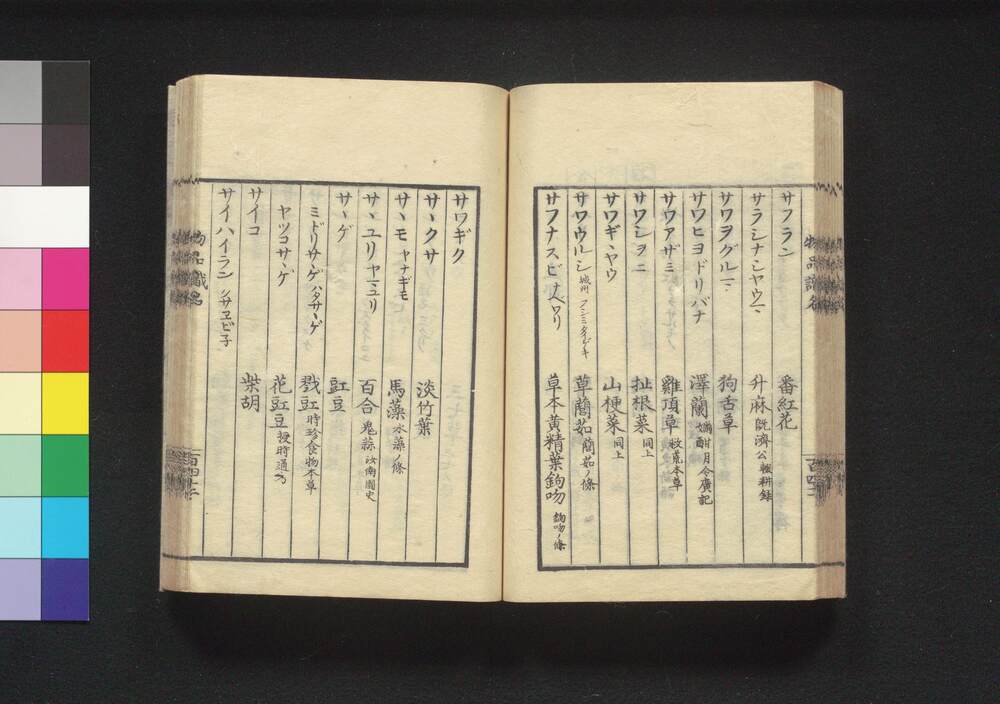 サフラン 番紅花
サラシナシヤウマ 升麻 既濟公 輟耕録
サワヲグルマ 狗舌草
サワヒヨドリバナ 澤蘭 月令廣記
サワアザミ 雞頂草 救荒本草
サワシヲニ 扯根菜 同上
サワギヽヤウ 山梗菜 同上
サワウルシ 城州 草䕡茹 䕡茹ノ條
サフナスビ 草本黄精葉鉤吻 鉤吻ノ條
サワギク
サヽクサ 淡竹葉
サヽモ ヤナギモ 馬藻 水藻ノ條
サヽユリ ヤマユリ 百合 鬼蒜 汝南圃史
サヽゲ 豇豆
ミドリサヽゲ ハタサヽゲ 戮豇 時珍食物本草
ヤツコサヽゲ 花豇豆 授時通乃
サイコ 柴胡
サイハイラン
物品識名
百四十二
物品識名